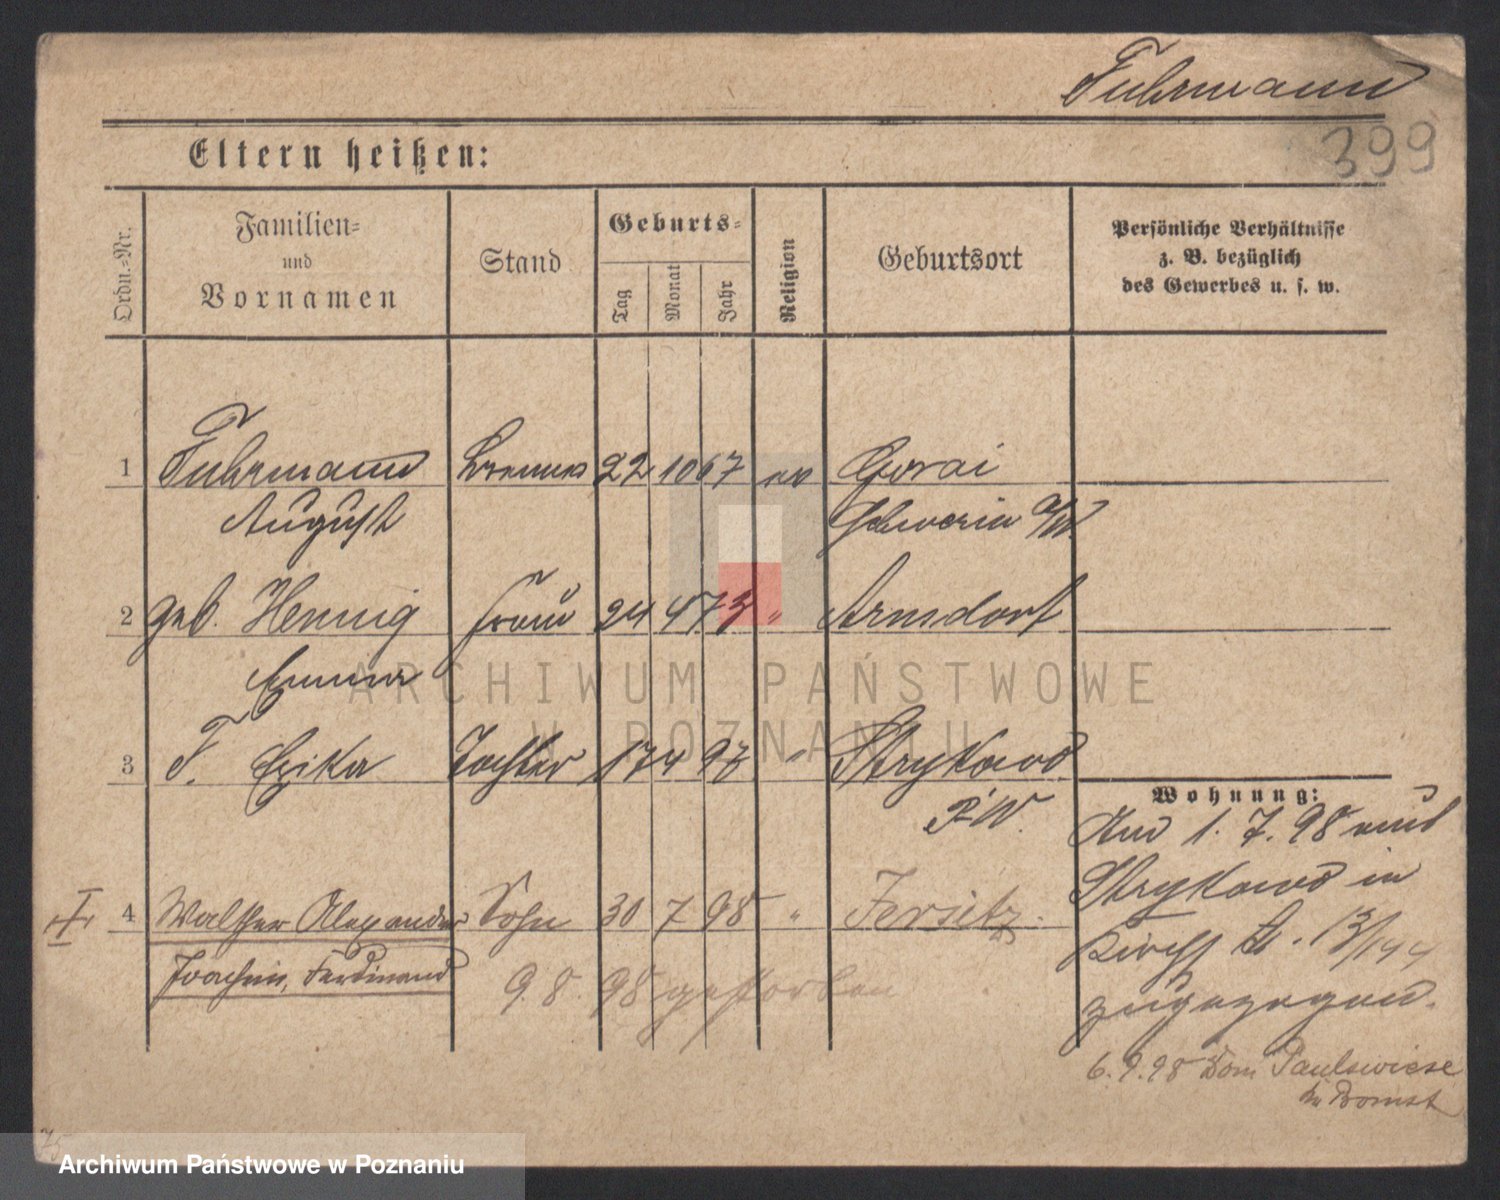 Fuhrmann
399
Eltern heißen:
Ordn.-Nr.
Familien-
und
Vornamen
Stand
Geburts-
Tag
Monat
Jahr
Religion
Geburtsort
Persönliche Verhältnisse
z. B. bezüglich
des Gewerbes u. s. w.
1 Fuhrmann 22 10 67 ev Gorai
August Schwerin a/W
2 geb. Hennig Frau 24 4 73 " Arnsdorf
Emma
3 F. Erika Tochter 17 4 97 " Strykowo
P. W.
Wohnung:
1. 7. 98 aus
Strykowo in
4 Walther Alexander Sohn 30 7 98 " Jersitz.
Joachim, Ferdinand
9. 8. 98 gestorben
13/144
zugezogen.
6. 9. 98 Dom Paulswiese
Bomst
ARCHIWUM PAŃSTWOWE
W POZNANIU
75
Archiwum Państwowe w Poznaniu